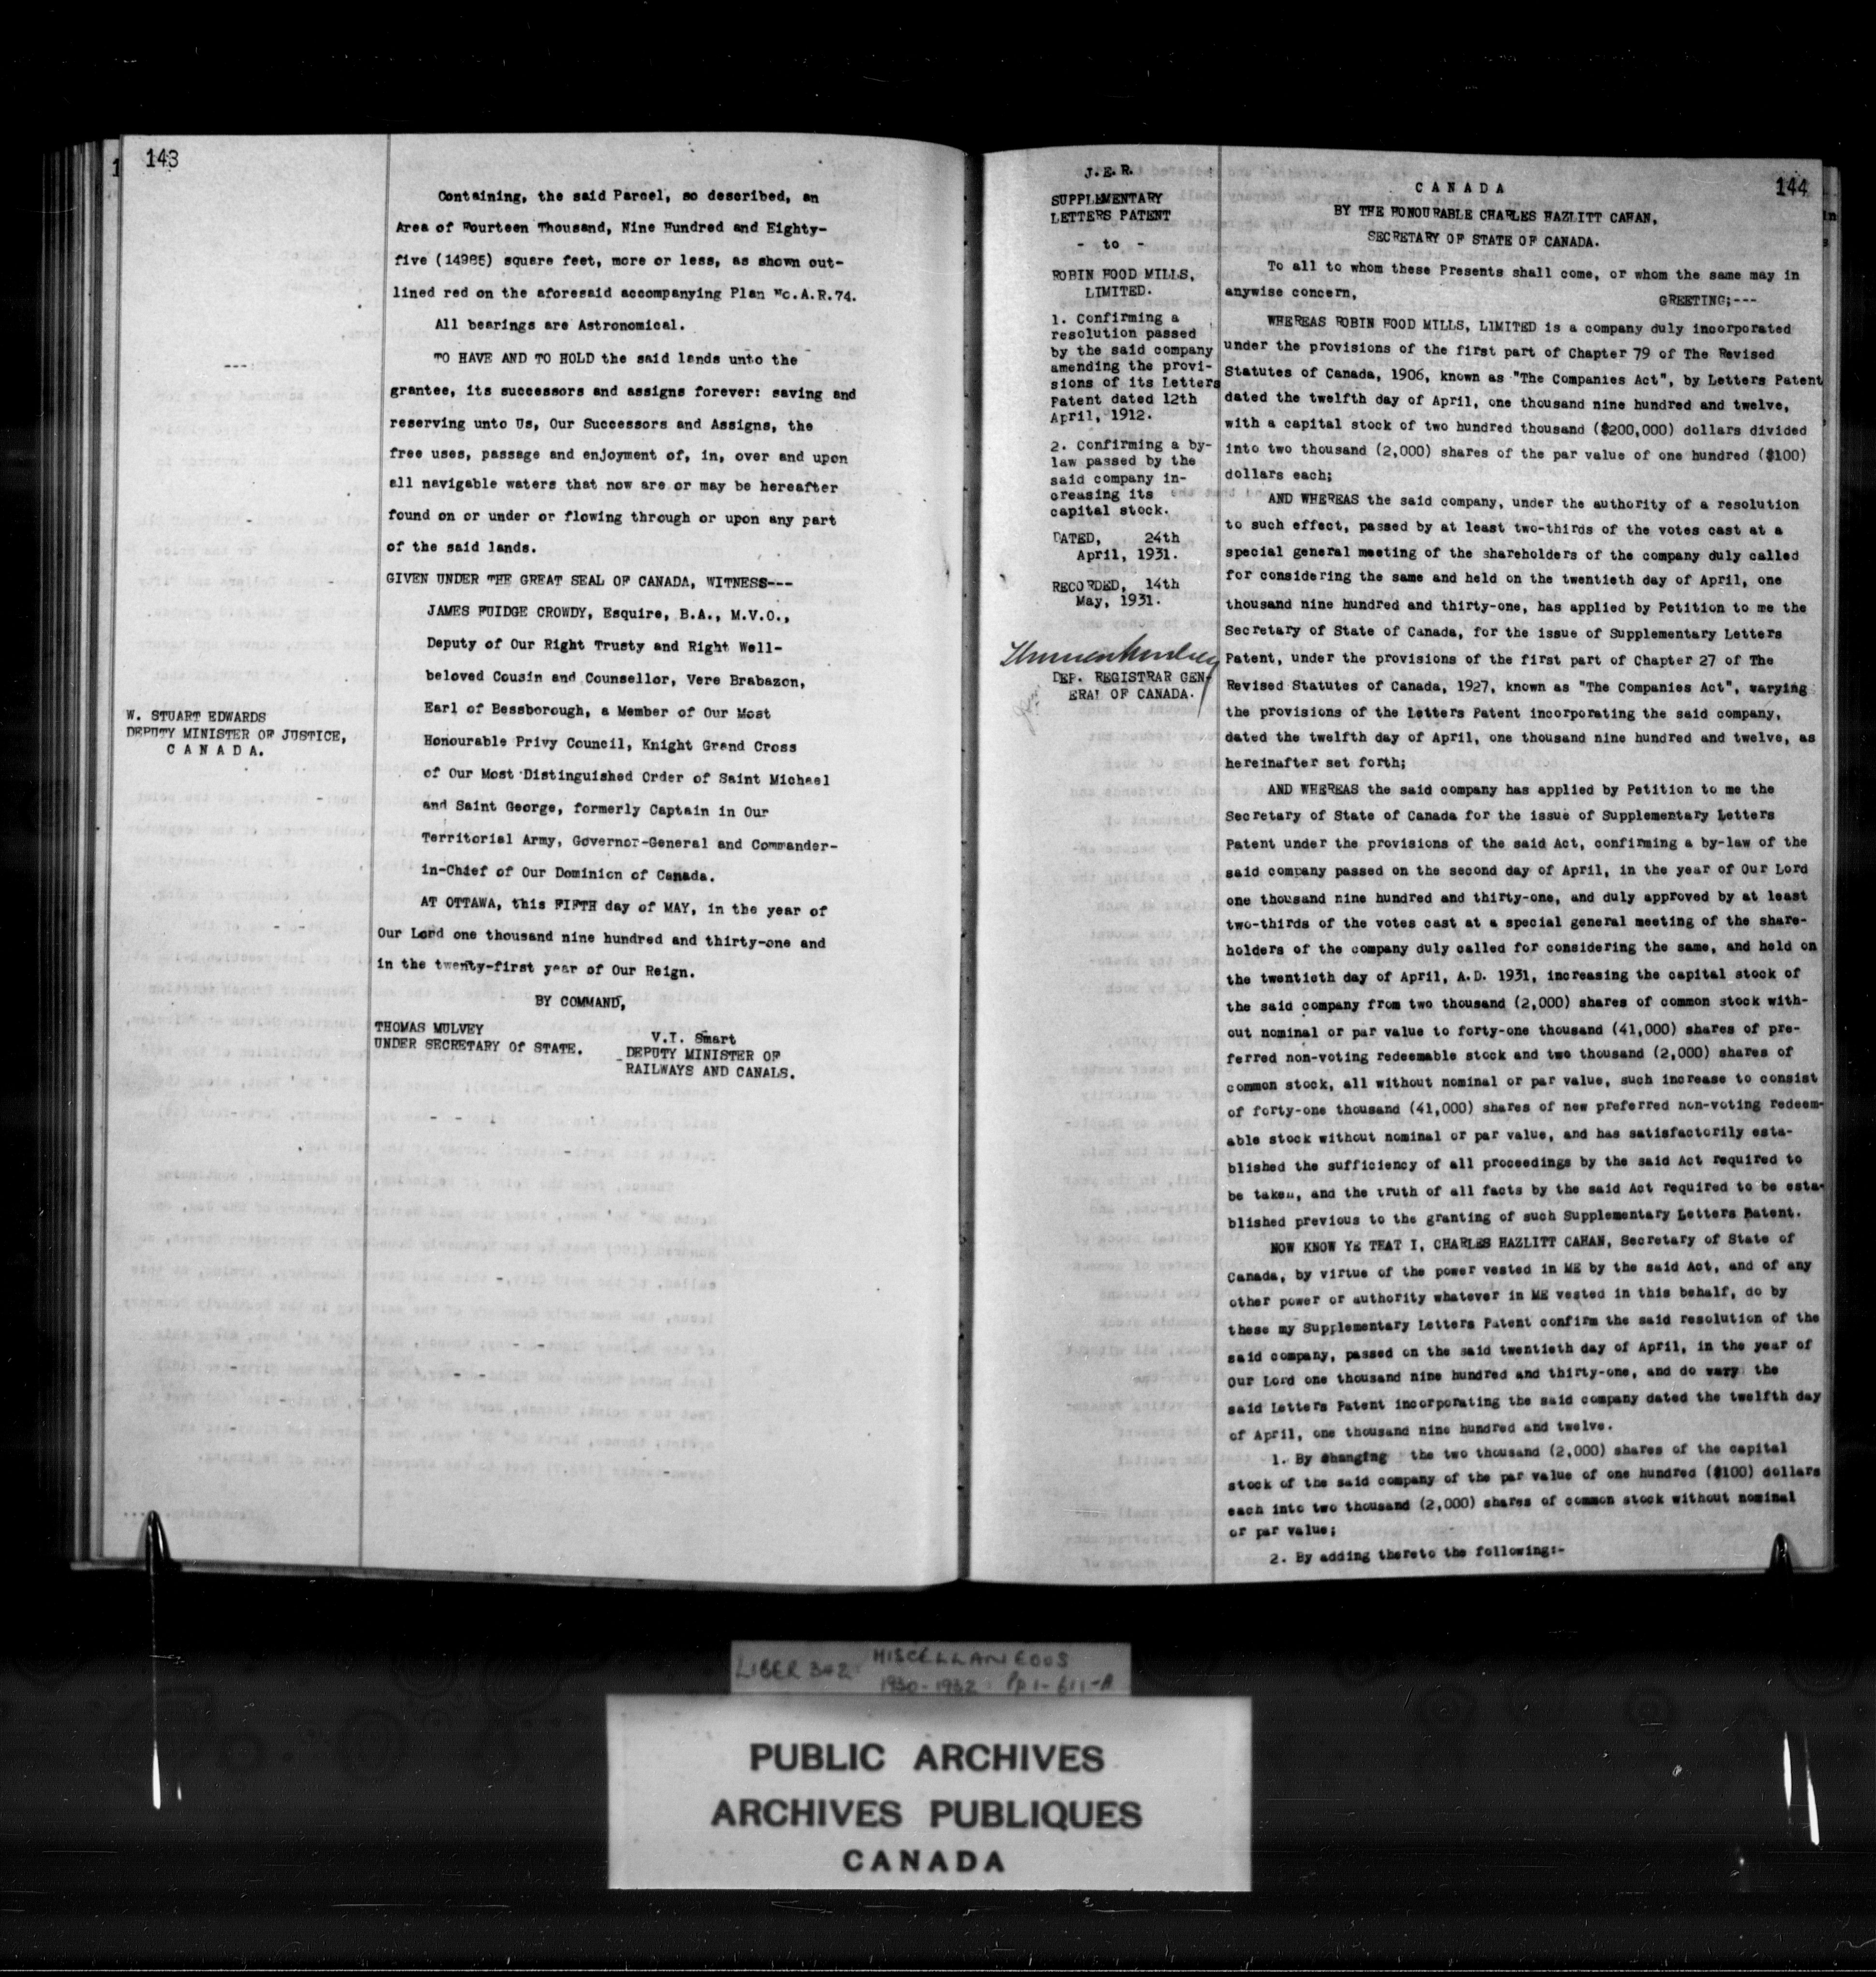 143
Containing, the said Parcel, so described, an
Area of Fourteen Thousand, Nine Hundred and Eighty-
five (14985) square feet, more or less, as shown out-
lined red on the aforesaid accompanying Plan No.A.R.74.
All bearings are Astronomical.
---
TO HAVE AND TO HOLD the said lands unto the
grantee, its successors and assigns forever: saving and
reserving unto Us, Our Successors and Assigns, the
free uses, passage and enjoyment of, in, over and upon
all navigable waters that now are or may be hereafter
found on or under or flowing through or upon any part
of the said lands.
GIVEN UNDER THE GREAT SEAL OF CANADA, WITNESS---
JAMES FUIDGE CROWDY, Esquire, B.A., M.V.O.,
Deputy of Our Right Trusty and Right Well-
beloved Cousin and Counsellor, Vere Brabazon,
Earl of Bessborough, a Member of Our Most
Honourable Privy Council, Knight Grand Cross
of Our Most Distinguished Order of Saint Michael
and Saint George, formerly Captain in Our
Territorial Army, Governor-General and Commander-
in-Chief of Our Dominion of Canada.
W. STUART EDWARDS
DEPUTY MINISTER OF JUSTICE,
C A N A D A.
AT OTTAWA, this FIFTH day of MAY, in the year of
Our Lord one thousand nine hundred and thirty-one and
in the twenty-first year of Our Reign.
BY COMMAND,
THOMAS MULVEY
UNDER SECRETARY Of STATE.
V.I. Smart
DEPUTY MINISTER OF
RAILWAYS AND CANALS.
144
J.E.R.
SUPPLEMENTARY
LETTERS PATENT
- to -
ROBIN HOOD MILLS,
LIMITED.
1. Confirming a
resolution passed
by the said company
amending the provi-
sions of its Letters
Patent dated 12th
April, 1912.
2. Confirming a by-
law passed by the
said company in-
creasing its
capital stock.
DATED, 24th
April, 1931.
RECORDED, 14th
May, 1931.
DEP. REGISTRAR GEN-
ERAL OF CANADA.
C A N A D A
BY THE HONOURABLE CHARLES HAZLITT CAHAN,
SECRETARY OF STATE OF CANADA.
To all to whom these Presents shall come, or whom the same may in
anywise concern,
GREETING;---
WHEREAS ROBIN HOOD MILLS, LIMITED is a company duly incorporated
under the provisions of the first part of Chapter 79 of The Revised
Statutes of Canada, 1906, known as "The Companies Act", by Letters Patent
dated the twelfth day of April, one thousand nine hundred and twelve,
with a capital stock of two hundred thousand ($200,000) dollars divided
into two thousand (2,000) shares of the par value of one hundred ($100)
dollars each;
AND WHEREAS the said company, under the authority of a resolution
to such effect, passed by at least two-thirds of the votes cast at a
special general meeting of the shareholders of the company duly called
for considering the same and held on the twentieth day of April, one
thousand nine hundred and thirty-one, has applied by Petition to me the
Secretary of State of Canada, for the issue of Supplementary Letters
Patent, under the provisions of the first part of Chapter 27 of The
Revised Statutes of Canada, 1927, known as "The Companies Act", varying
the provisions of the Letters Patent incorporating the said company,
dated the twelfth day of April, one thousand nine hundred and twelve, as
hereinafter set forth;
AND WHEREAS the said company has applied by Petition to me the
Secretary of State of Canada for the issue of Supplementary Letters
Patent under the provisions of the said Act, confirming a by-law of the
said company passed on the second day of April, in the year of Our Lord
one thousand nine hundred and thirty-one, and duly approved by at least
two-thirds of the votes cast at a special general meeting of the share-
holders of the company duly called for considering the same, and held on
the twentieth day of April, A.D. 1931, increasing the capital stock of
the said company from two thousand (2,000) shares of common stock with-
out nominal or par value to forty-one thousand (41,000) shares of pre-
ferred non-voting redeemable stock and two thousand (2,000) shares of
common stock, all without nominal or par value, such increase to consist
of forty-one thousand (41,000) shares of new preferred non-voting redeem-
able stock without nominal or par value, and has satisfactorily esta-
blished the sufficiency of all proceedings by the said Act required to
be taken, and the truth of all facts by the said Act required to be esta-
blished previous to the granting of such Supplementary Letters Patent.
NOW KNOW YE THAT I, CHARLES HAZLITT CAHAN, Secretary of State of
Canada, by virtue of the power vested in ME by the said Act, and of any
other power or authority whatever in ME vested in this behalf, do by
these my Supplementary Letters Patent confirm the said resolution of the
said company, passed on the said twentieth day of April, in the year of
Our Lord one thousand nine hundred and thirty-one, and do vary the
said Letters Patent incorporating the said company dated the twelfth day
of April, one thousand nine hundred and twelve.
1. By changing the two thousand (2,000) shares of the capital
stock of the said company of the par value of one hundred ($100) dollars
each into two thousand (2,000) shares of common stock without nominal
or par value;
2. By adding thereto the following:-
LIBER 342 MISCELLANEOUS
1930-1932 Pp 1-611-A
PUBLIC ARCHIVES
ARCHIVES PUBLIQUES
CANADA